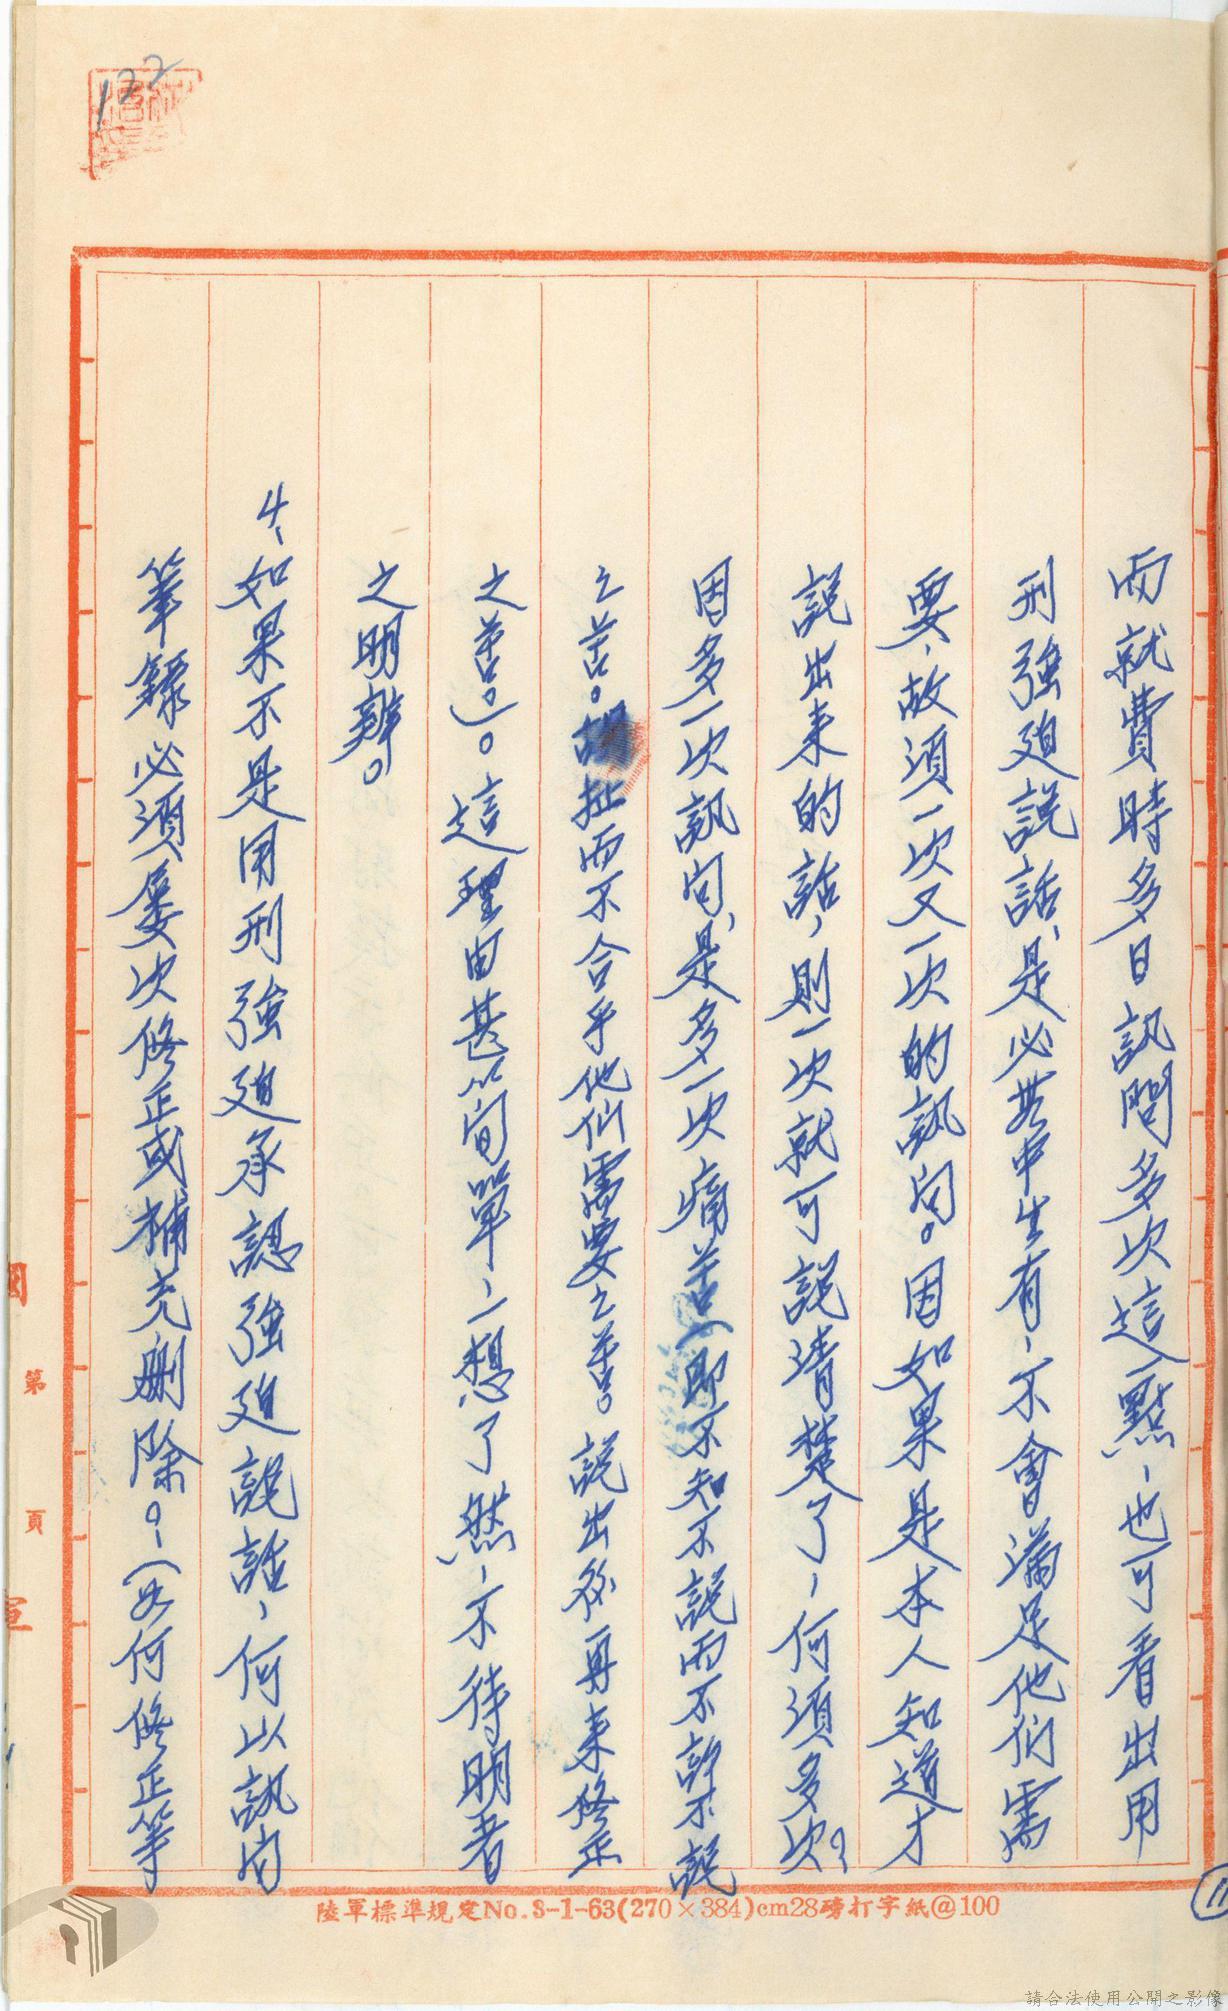 122
而就費時多日訊問多次這一點、也可看出用
刑強迫說話、是必無中生有、不會滿足他們需
要、故須一次又一次的訊問。因如果是本人知道才
說出来的話、則一次就可說清楚了、何須多次?
因多一次訊问、是多一次痛苦(即不知不說而不許不說
之苦。胡扯而不合乎他们需要之苦。說出後再来修正
之苦。)。這理由甚简單、一想了然、不待明者
之明辨。
4、如果不是用刑強迫承認強迫說話、何以訊问
筆錄必須屢次修正或補充刪除?、(如何修正等
第 頁
陸軍標準規定No.8-1-63(270×384)cm28磅打字紙@100
11
請合法使用公開之影像